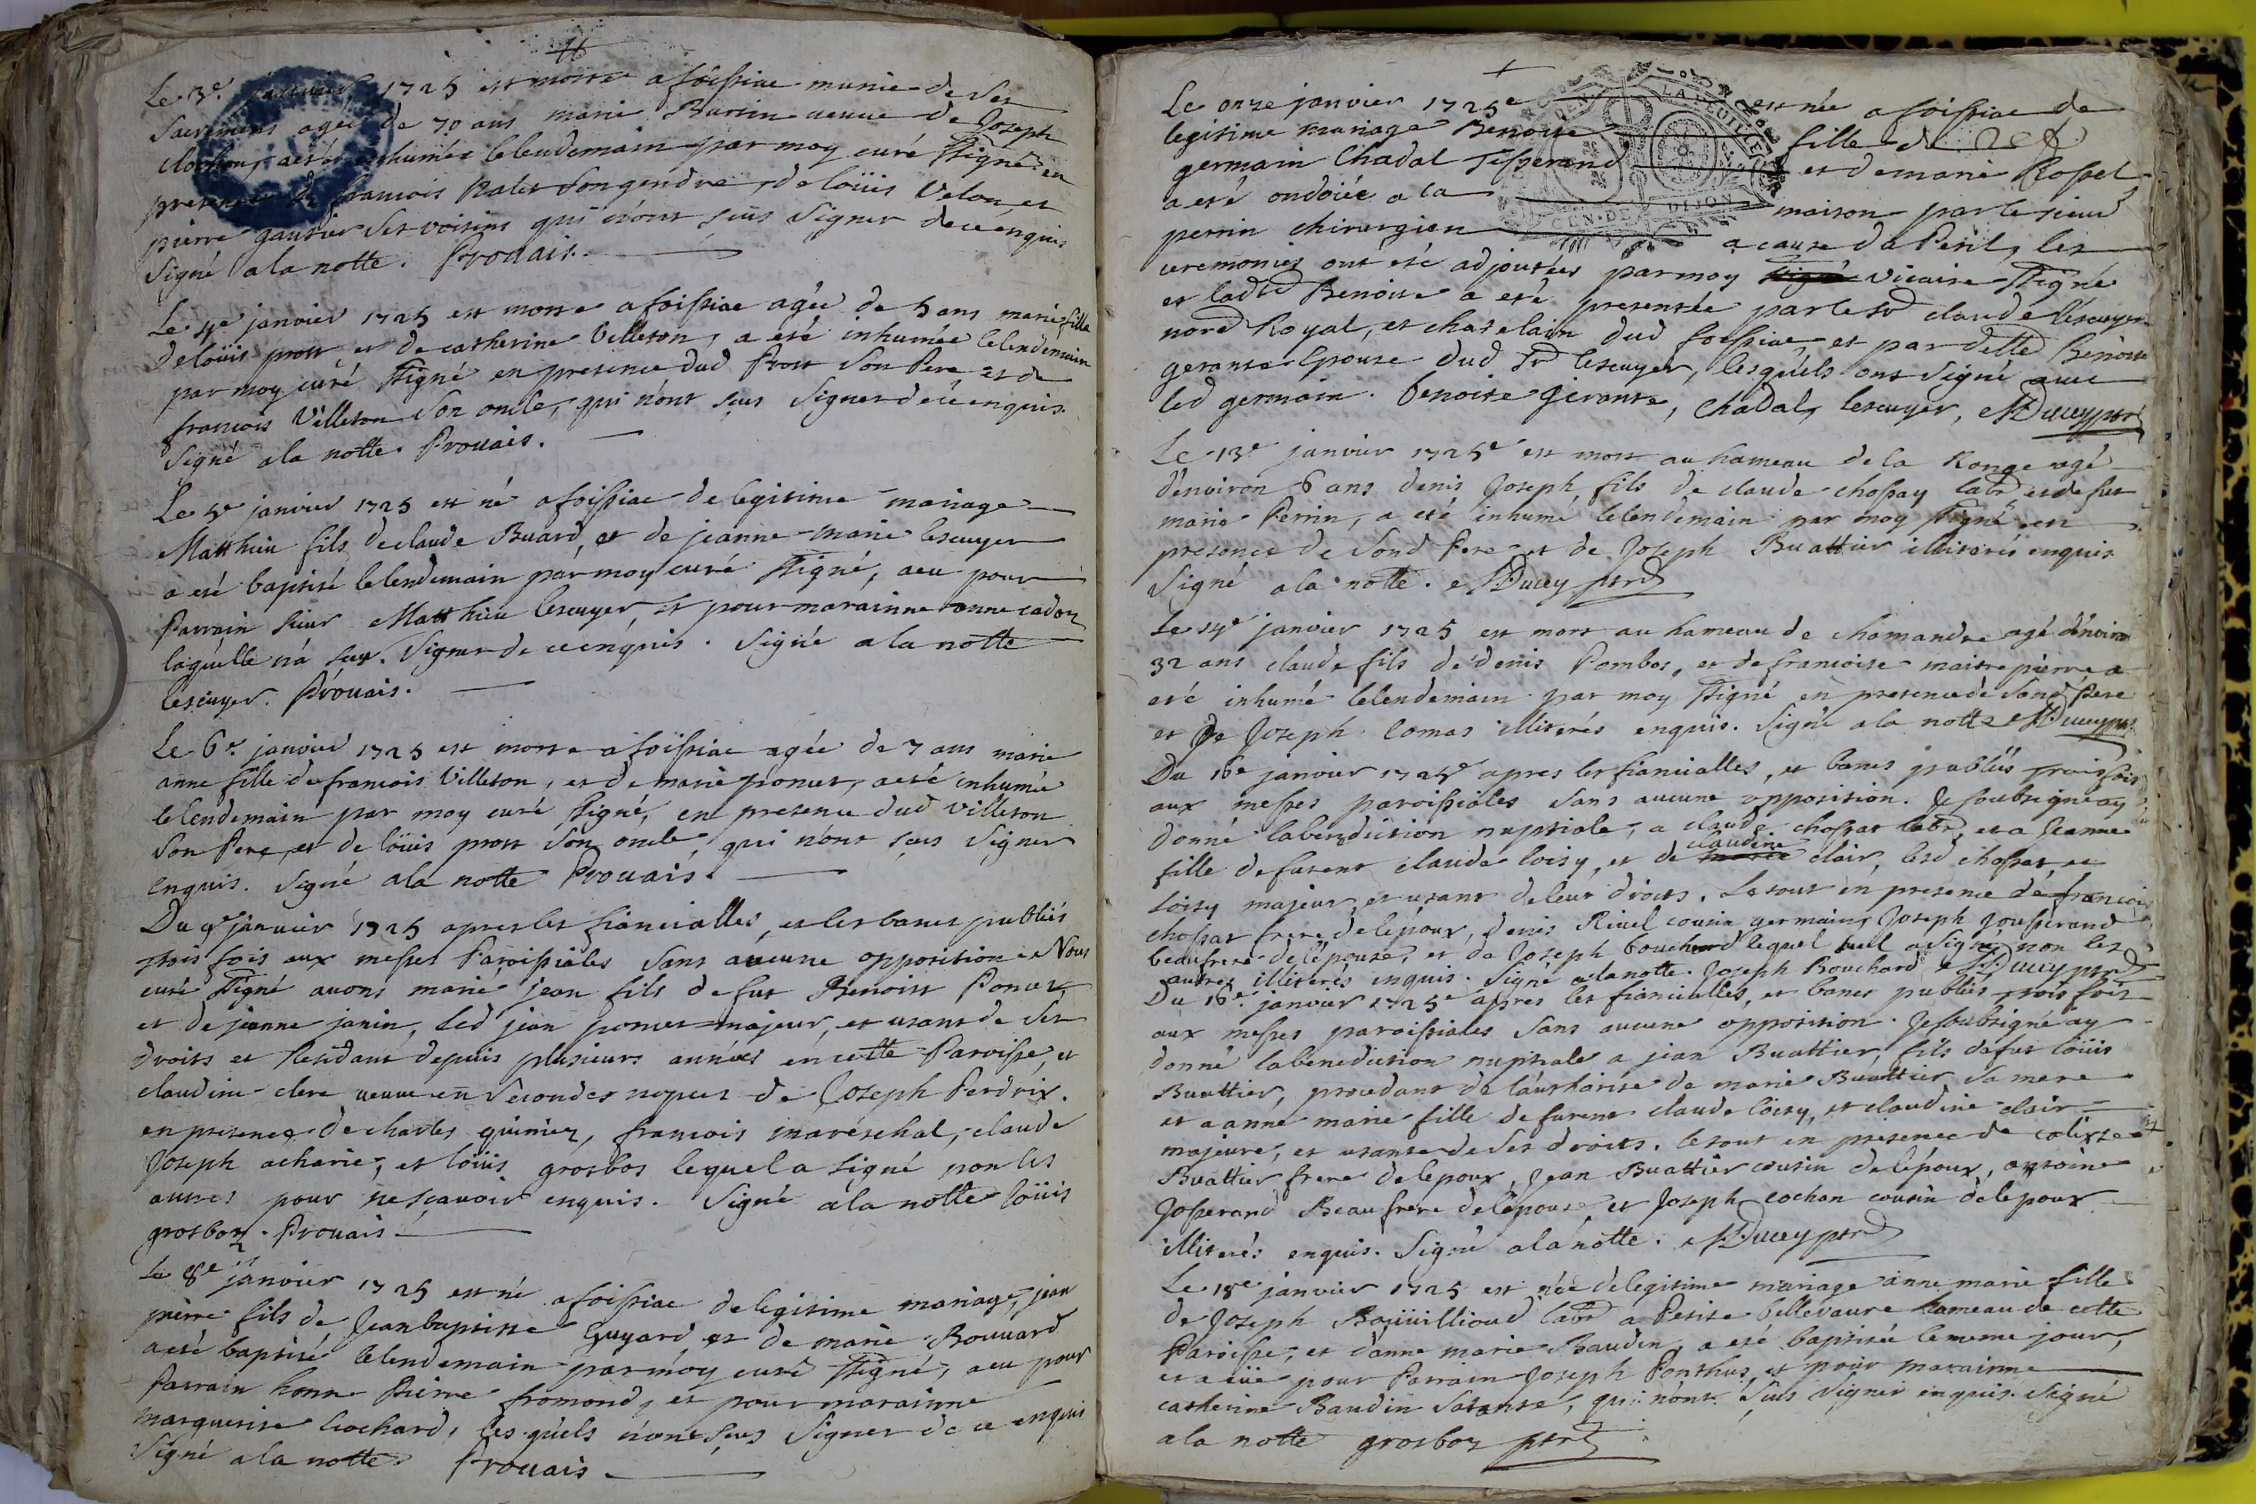 Le 3e janvier 1725 est morte a foissiac munie de ses
sacremens agée de 70 ans marie Burtin veuve de Joseph
clochon, a eté inhumée le lendemain par moy curé ssigné en
presence de francois Nalet son gendre, de loüis Velon et
pierre gautier ses voisins qui n'ont scus signer de ce enquis
signé a la notte. Prouais.
Le 4e janvier 1725 est morte a foissiac agée de 5 ans marie fille
de loüis prost et de catherine Villeton, a eté inhumée le lendemain
par moy curé ssigné en presence dud Prost son Pere et de
francois Villeton son oncle, qui n'ont scus signer de ce enquis.
signé a la notte. Prouais.
Le 5e janvier 1725 est né a foissiac de legitime mariage
Matthieu fils de claude Buard, et de jeanne marie lescuyer
a eté baptisé le lendemain par moy curé ssigné, a eu pour
Parrain sieur Matthieu lescuyer, et pour marainne anne cadoz
laquelle n'a scu signer de ce enquis. Signé a la notte
lescuyer. Prouais.
Le 6e janvier 1725 est morte a foissiac agée de 7 ans marie
anne fille de francois Villeton, et de marie poncet, a eté inhumée
le lendemain par moy curé ssigné, en presence dud Villeton
son Pere, et de loüis prost son oncle, qui n'ont scus signer
enquis. Signé a la notte Prouais.
Du 9e janvier 1725 apres les fiancialles, et les bancs publiés
trois fois aux messes Paroissiales sans aucune opposition Nous
curé ssigné avons marié jean fils de fut Benoist Poncet,
et de jeanne janin, led jean poncet majeur, et usant de ses
droits et Residant depuis plusieurs années en cette Paroisse, et
claudine clerc veuve en secondes nopces de Joseph Perdrix.
en presence de charles guinier, francois mareschal, claude
Joseph acharie, et loüis grosbos lequel a signé non les
autres pour ne scavoir enquis. Signé a la notte loüis
grosboz. Prouais.
Le 8e janvier 1725 est né a foissiac de legitime mariage, jean
pierre fils de Jean baptiste Guyard et de marie Bouvard
a eté baptisé le lendemain par moy curé ssigné, a eu pour
Parrain honn Pierre fromond, et pour marainne
marguerite Cochard, lesquels n'ont scus signer de ce enquis
Signé a la notte. Prouais.
Le onze janvier 1725e est née a foissiac de
legitime mariage Benoite fille de
germain Chadal Tisserand et de marie Rosset
a eté ondoiée a la maison par le sieur
perrin chirurgien a cause de Peril, les
ceremonies ont eté adjoutées par moy signé vicaire ssigné
et ladte Benoite a eté presentée par le sr claude lescuyer
nore Royal, et chatelain dud foissiac, et par delle Benoite
gerante Epouse dud sr lescuyer, lesquels ont signé avec
led germain. benoite gerante, Chadal, lescuyer, Ducey ptre
Le 13e janvier 1725e est mort au hameau de la Ronge agé
d'environ 6 ans denis Joseph fils de claude chossay labr, et de fut
marie Perrin, a eté inhumé le lendemain par moy ssigné en
presence de sond Pere et de Joseph Buattier illiterés enquis
Signé a la notte. Ducey ptre
Le 14e janvier 1725 est mort au hameau de chamandre agé d'environ
32 ans claude fils de denis Pambos, et de francoise maitrepierre a
eté inhumé le lendemain par moy ssigné en presence de sond Pere
et de Joseph comas illiterés enquis. Signé a la notte Ducey ptre
Du 16e janvier 1725e apres les fiancialles, et bancs publiés trois fois
aux messes paroissiales sans aucune opposition. Je soubsigné ay
donné la benediction nuptiale, a claude chossat labr, et a Jeanne
fille de furent claude loisy, et de claudine clair, lesd chossat, et
loisy majeur, et usant de leur droits. Le tout en presence de francois
chossat frere de lépoux, denis Rivel cousin germain, Joseph Jousserand
beaufrere de lépouse, et de Joseph bouchard lequel seul a signé non les
autres illiterés enquis. Signé a la notte. Joseph Bouchard Ducey ptre
Du 16e janvier 1725e apres les fiancialles, et bancs publiés trois fois
aux messes paroissiales sans aucune opposition. Je soubsigné ay
donné la benediction nuptiale a jean Buattier, fils de fut loüis
Buattier, procedant de l'authorité de marie Buattier sa mere
et a anne marie fille de furent claude loisy, et claudine clair
majeure, et usante de ses droits. le tout en presence de calixte
Buattier frere de lepoux, Jean Buattier cousin de lépoux, antoine
Josserand Beaufrere de lépouse, et Joseph cochon cousin de lépoux
illiterés enquis. Signé a la notte. Ducey ptre
Le 18e janvier 1725 est née de legitime mariage anne marie fille
de Joseph Boüvillioud labr a Petite Villevaure hameau de cette
Paroisse, et d'anne marie Baudin, a eté baptisée le meme jour,
et a eüe pour Parrain Joseph Ponthus et pour marainne
catherine Baudin sa tante, qui n'ont scus signer enquis. Signé
a la notte grosboz ptre